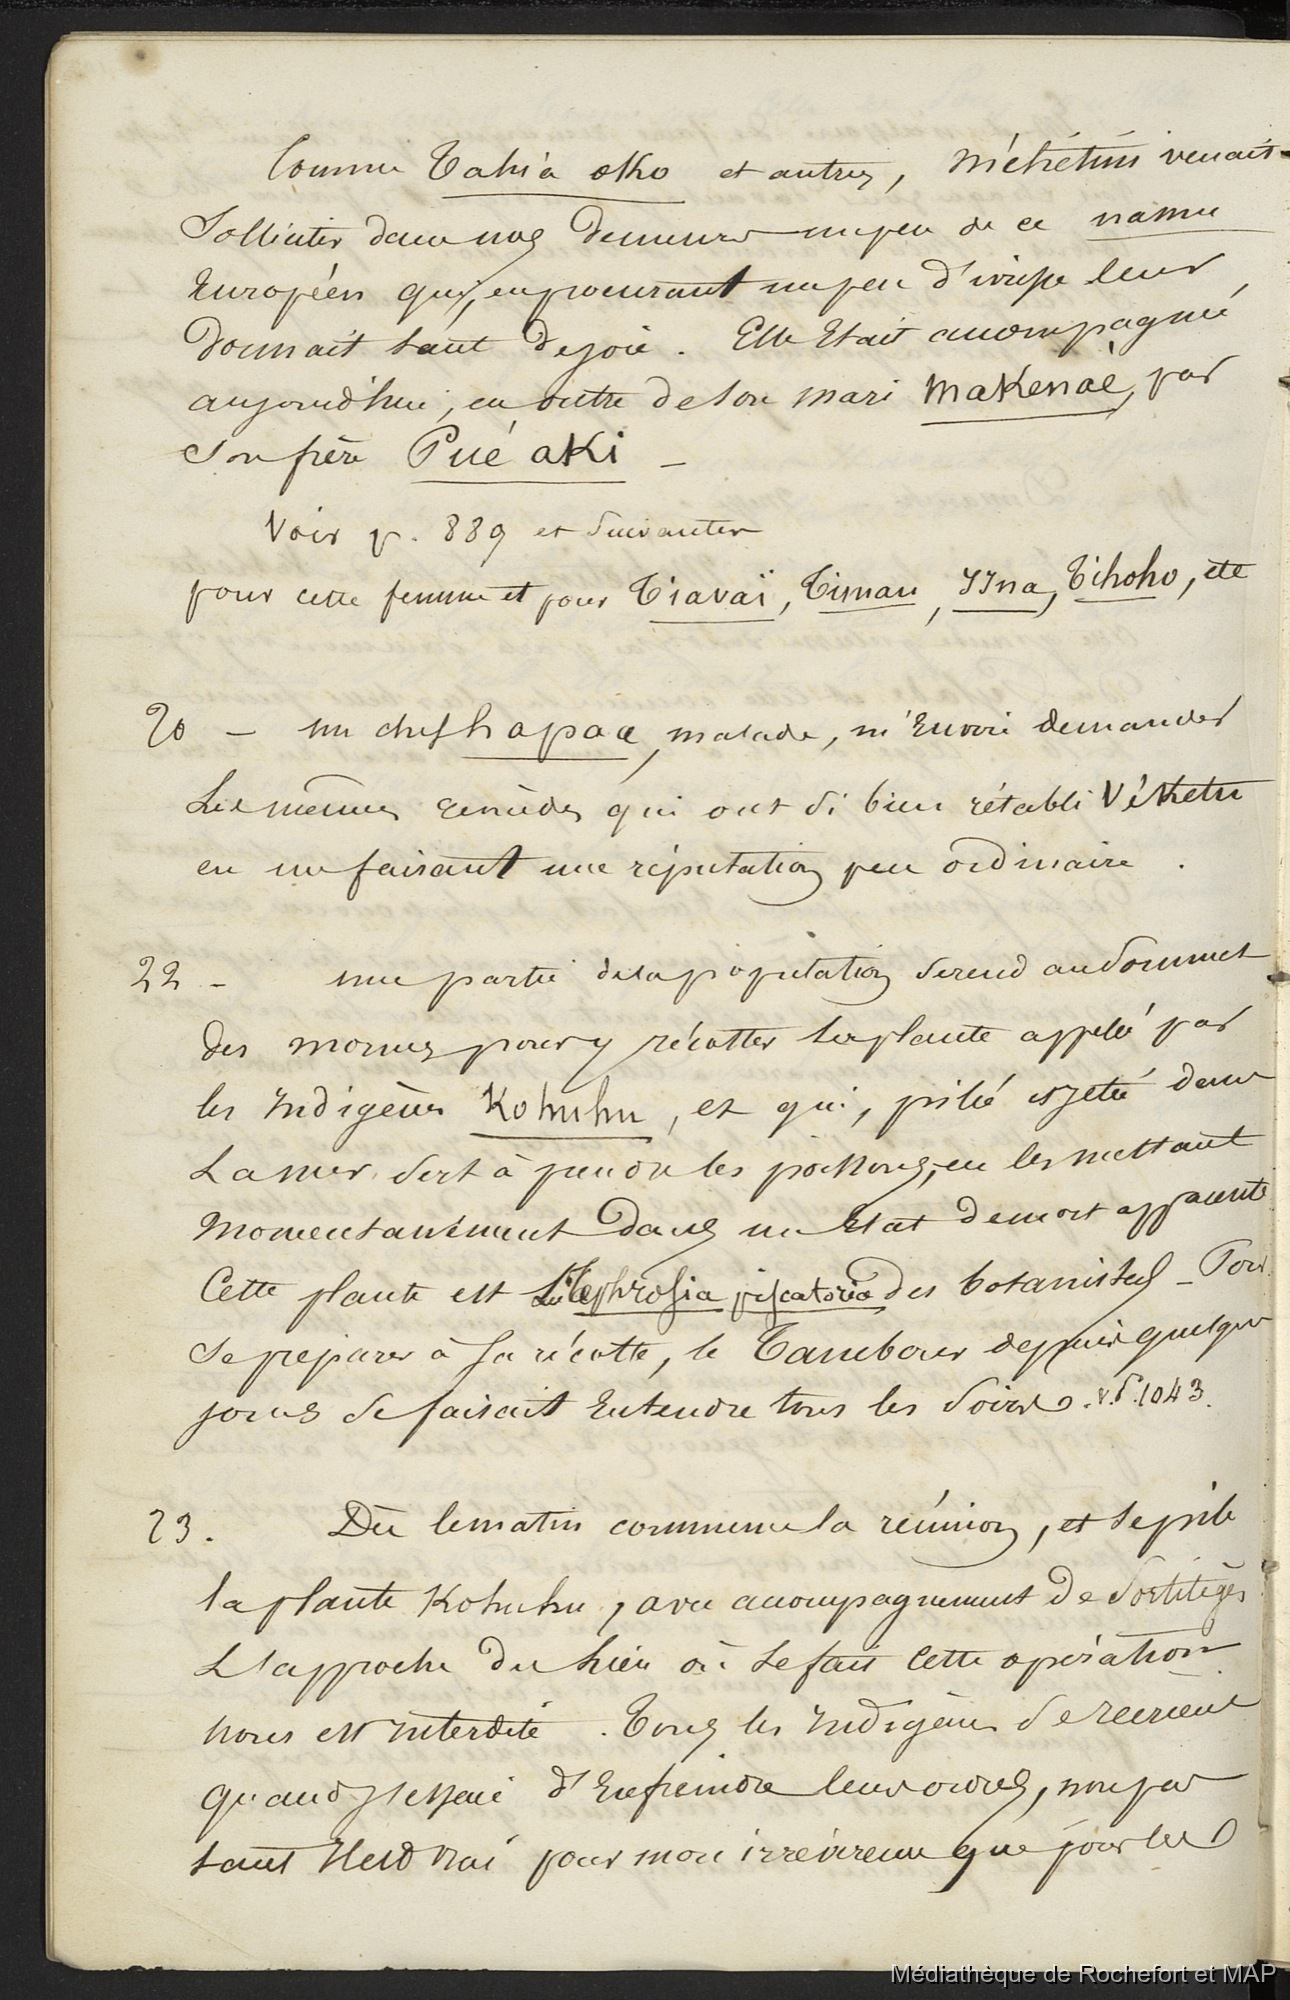 Comme Tahia oKo et autres, Méhétini venait
solliciter dans nos demeures un peu de ce namu
Européen qui, en procurant un peu d'ivresse leur
donnait tant de joie. Elle était accompagnée,
aujourd'hui, en outre de son mari MaKenaè, par
son frère Pué aKi —
Voir p. 889 et suivantes
pour cette femme et pour Tiavaï, Timau, Ina, Tihoho, etc
20 — un chef hapaa, malade, m'envoie demander
les mêmes remèdes qui ont si bien rétabli VéKetu
en me faisant une réputation peu ordinaire.
22 — une partie de la population se rend au sommet
des mornes pour y récolter la plante appelée par
les indigènes Kohuhu, et qui, pilée et jetée dans
la mer sert à prendre les poissons, en les mettant
momentanément dans un état de mort apparente
Cette plante est le Tephrosia piscatoria des botanistes — Pour
se préparer à sa récolte, le Tambour depuis quelques
jours se faisait entendre tous les soirs. v. p. 1043.
23. Dès le matin commence la réunion, et se pile
la plante Kohuhu, avec accompagnement de sortilèges
L'approche du lieu où se fait cette opération
nous est interdite. Tous les indigènes se récrient
quand j'essaie d'enfreindre leurs ordres, non pas
tant il est vrai pour moi irrévérencieux que pour les